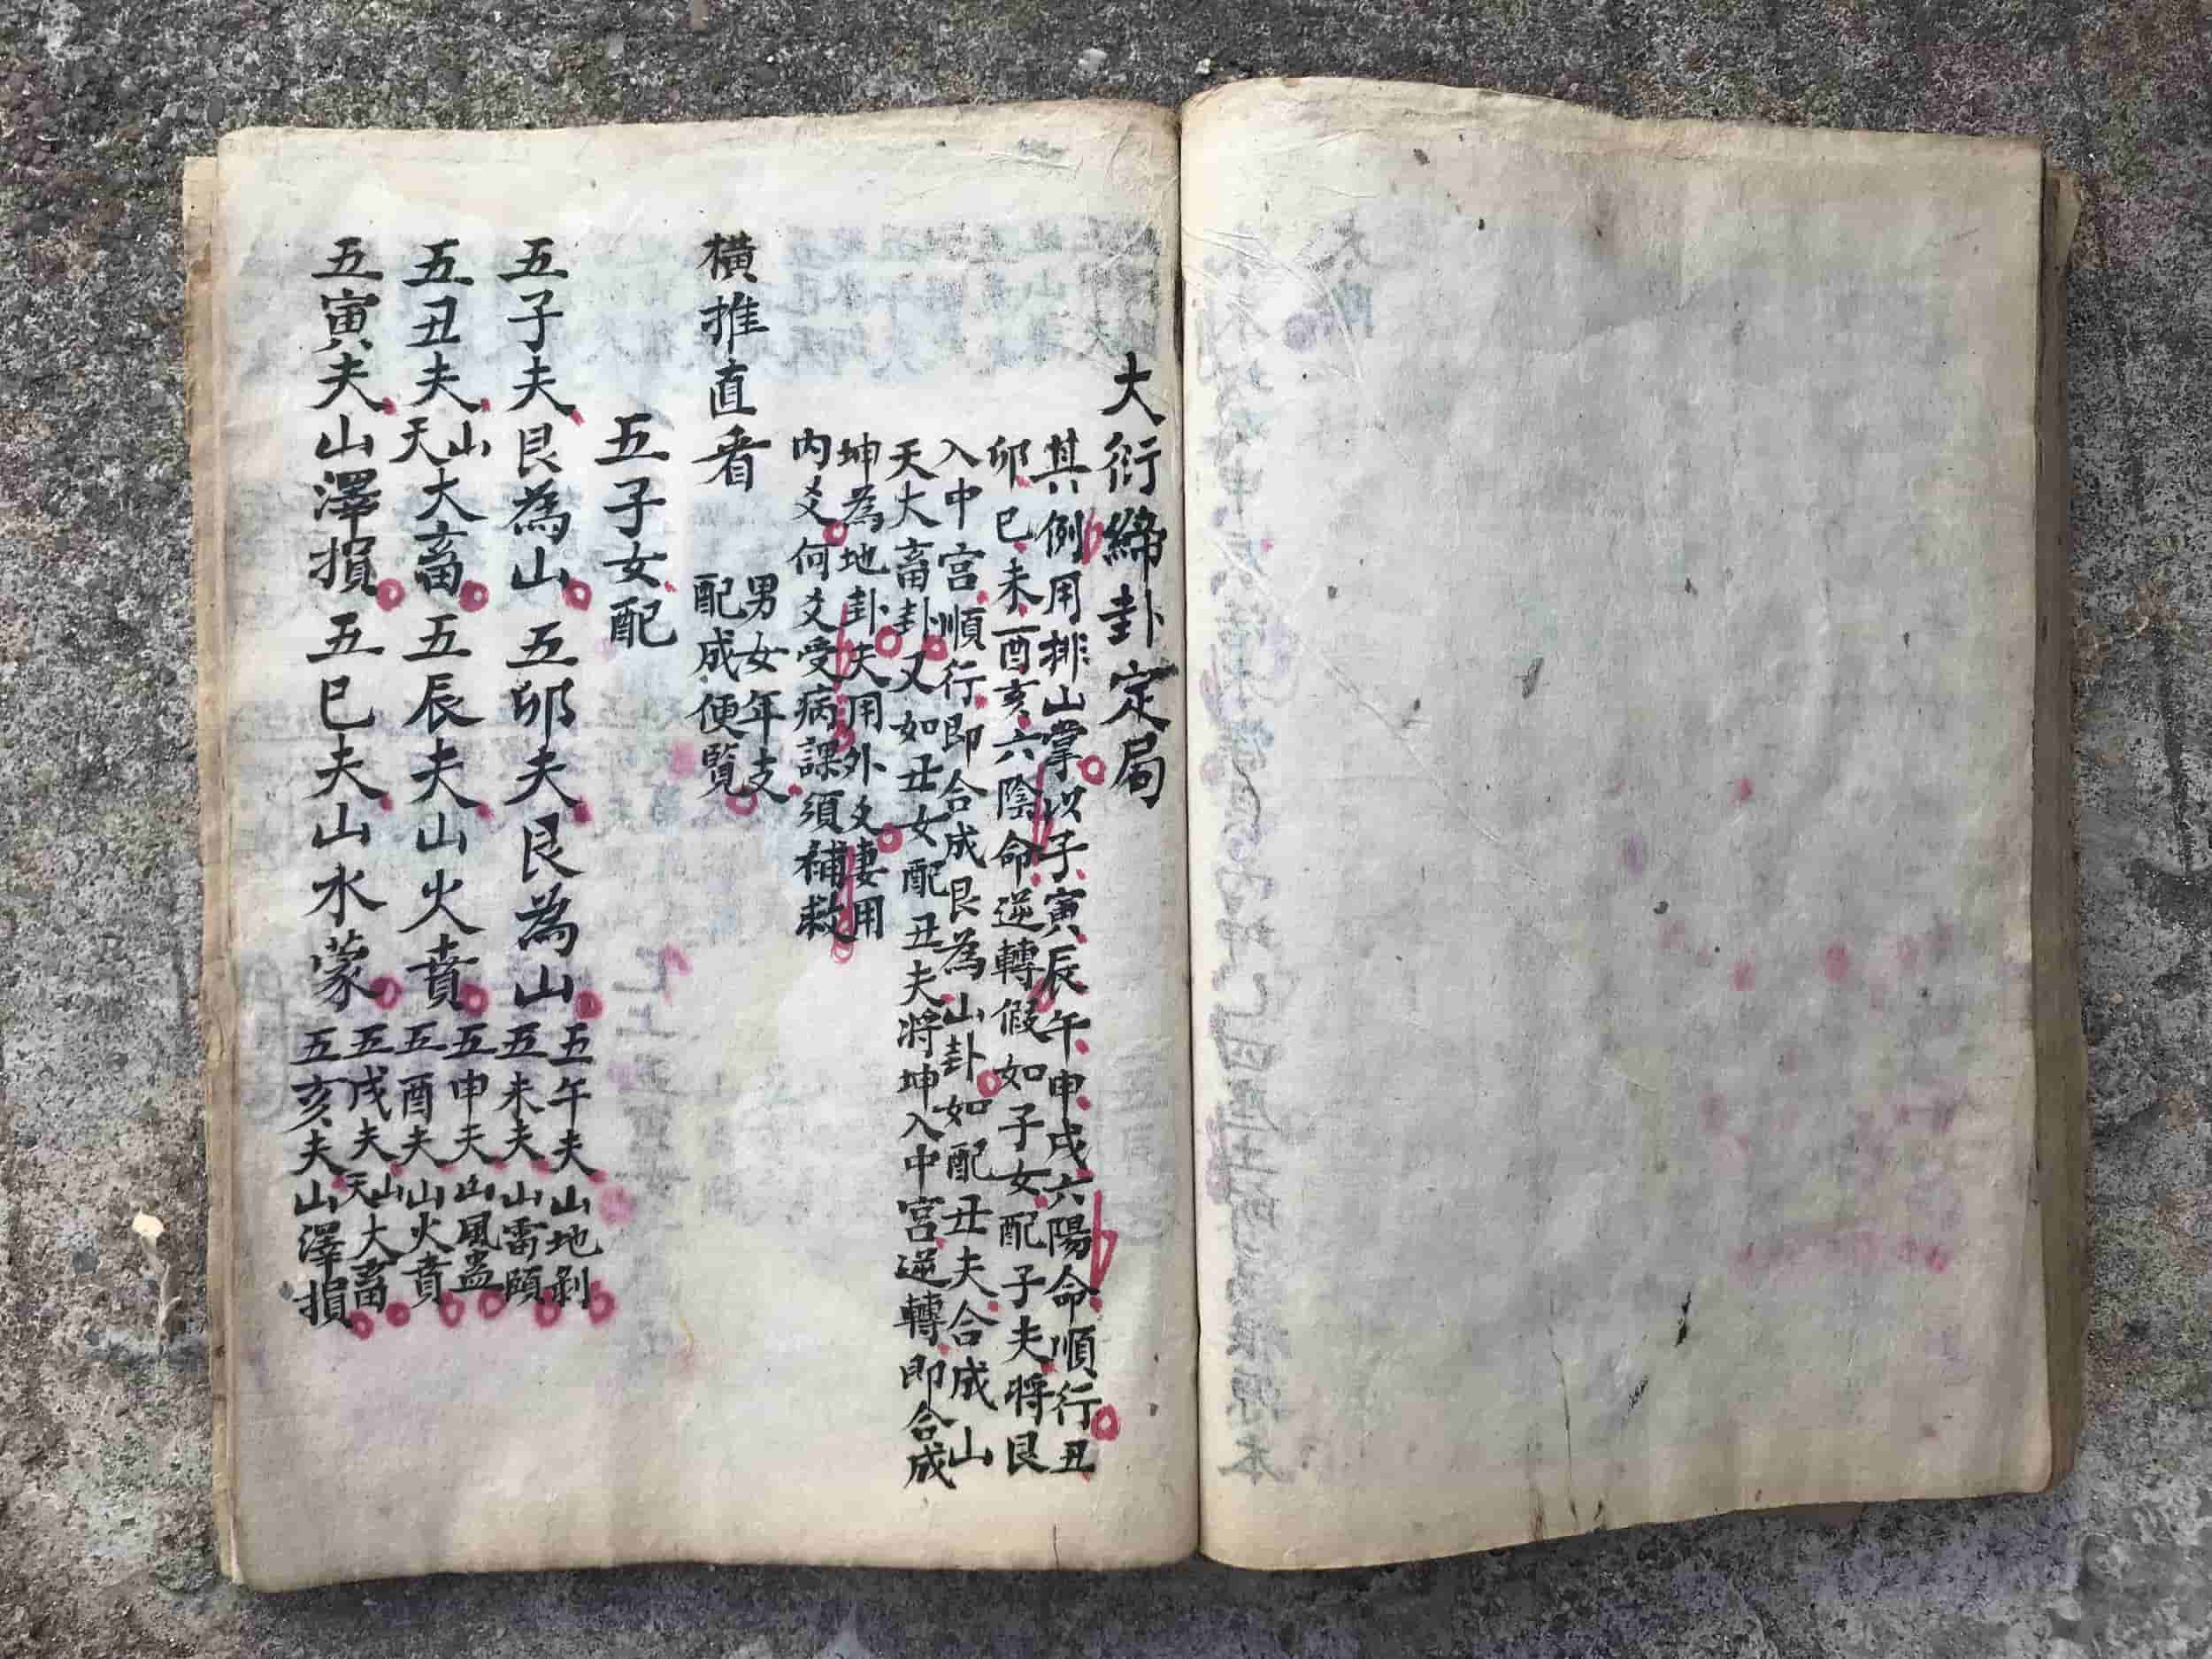 大衍締卦定局
其例用排山掌以子寅辰午申戌六陽命順行丑
卯巳未酉亥六陰命逆轉假如子女配子夫將艮
入中宮順行即合成艮為山卦如配丑夫合成山
天大畜卦又如丑女配丑夫將坤入中宮逆轉即合成
坤為地卦夫用外爻妻用
內爻何爻受病課須補救
橫推直看
男女年支
配成便覽
五子女配
五子夫艮為山 五卯夫艮為山
五午夫山地剝
五未夫山雷頤
五丑夫山天大畜 五辰夫山火賁
五申夫山風蠱
五酉夫山火賁
五寅夫山澤損 五巳夫山水蒙
五戌夫山天大畜
五亥夫山澤損